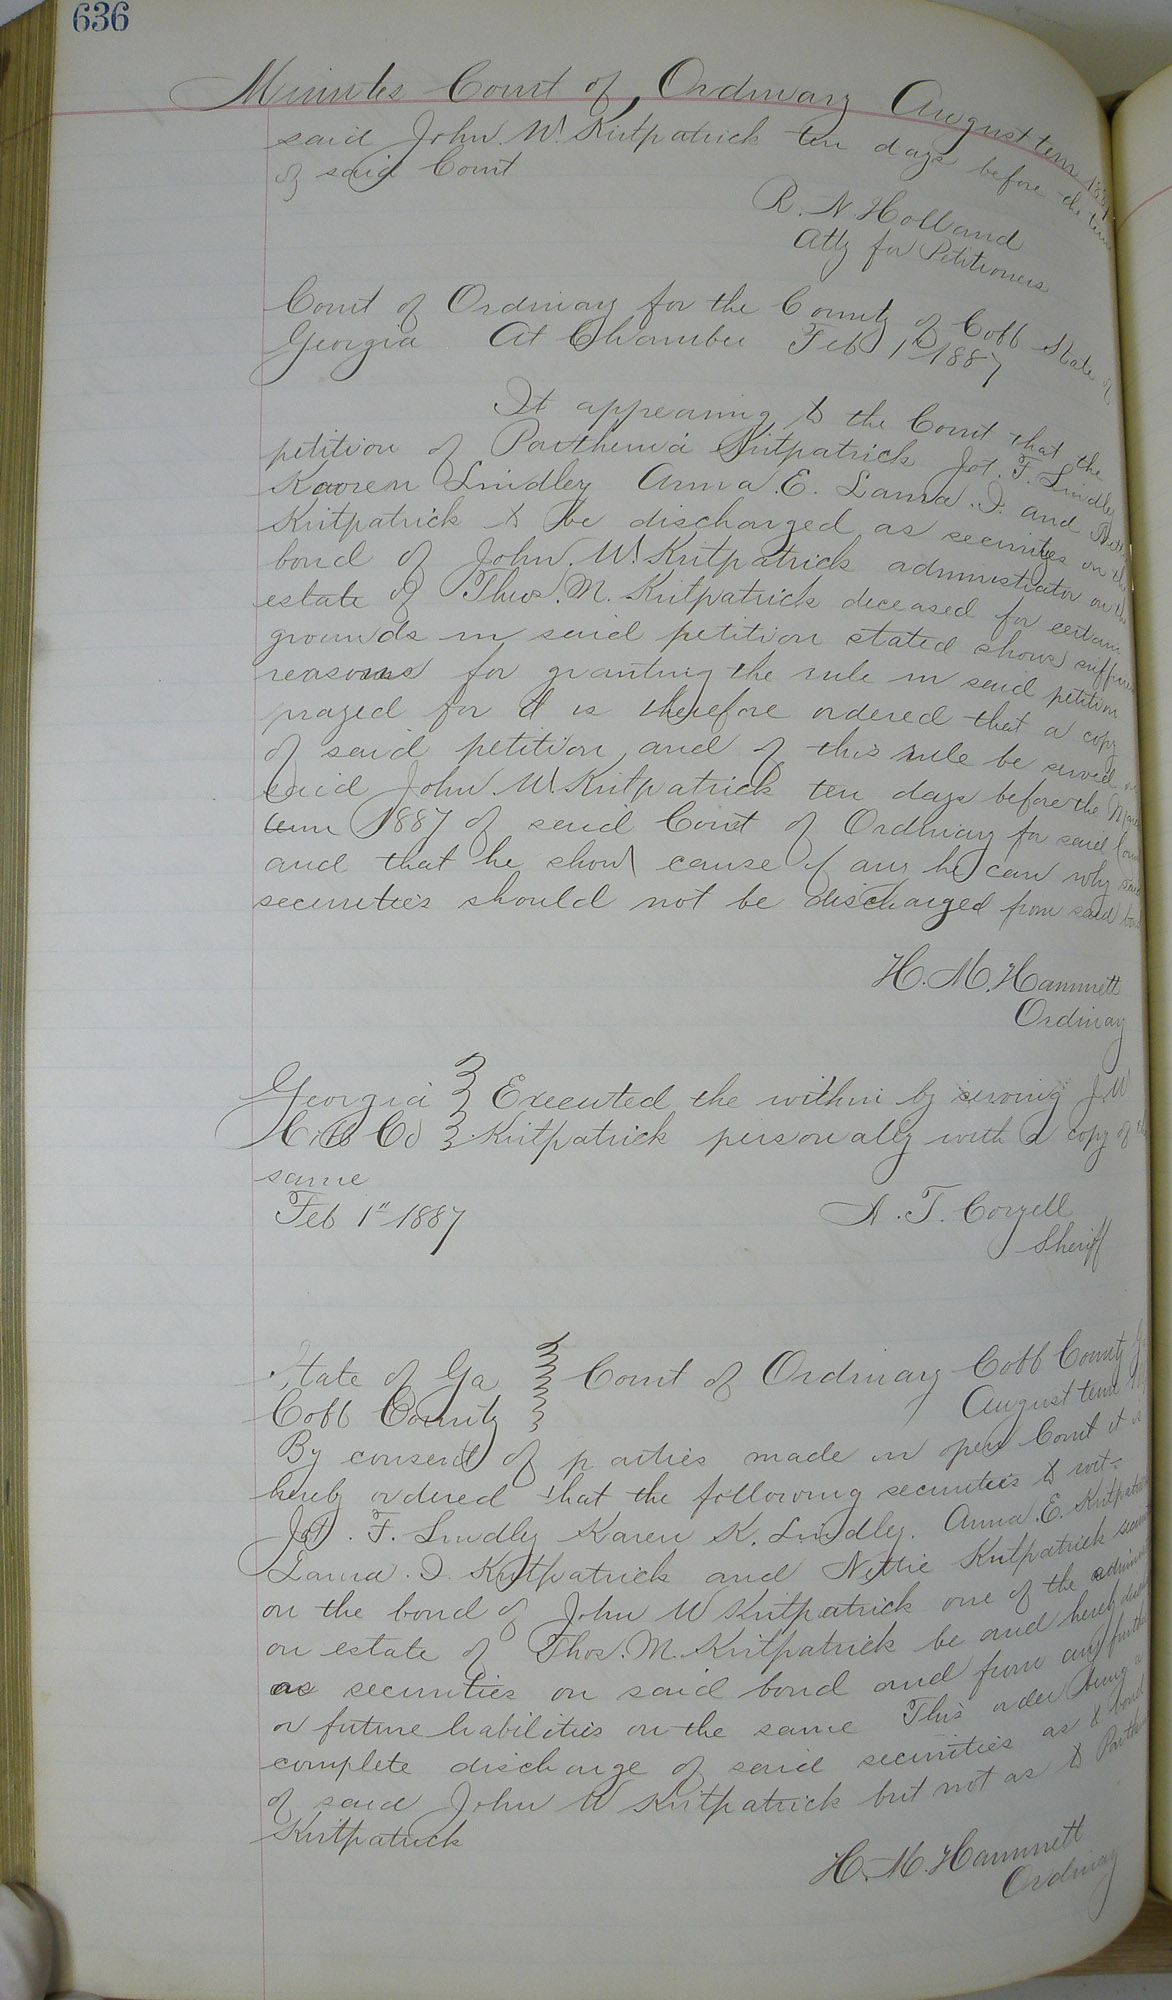 636
Minutes Court of Ordinary August term 1887
said John. W. Kirtpatrick ten days before the term
of said Court
R. N Holland
Atty for Petitioners
Court of Ordinary for the County of Cobb State of
Georgia At Chamber Feb 1st 1887
It appearing to the Court that the
petition of Parthenia Kirtpatrick Jot. F. Lindley
Karren Lindley Anna. E. Laura. I. and
Kirtpatrick to be discharged as securities on the
bond of John. W. Kirtpatrick administrator on the
estate of Thos. M. Kirtpatrick deceased for certain
grounds in said petition stated shows
reasons for granting the rule in said petition
prayed for it is therefore ordered that a copy
of said petition and of this rule be served on
said John. W. Kirtpatrick ten days before the
term 1887 of said Court of Ordinary for said
and that he show cause if any he can why said
securities should not be discharged from said bond
H. M. Hammett
Ordinary
Georgia Executed the within by serving J W
Cobb Co Kirtpatrick personally with a copy of the
same
Feb 1st 1887 A. T. Coryell
Sheriff
State of Ga Court of Ordinary Cobb County
Cobb County August term
By consent of parties made in open Court it is
hereby ordered that the following securities to wit-
Jot. F. Lindley Karen K. Lindley. Anna. E. Kirtpatrick
Laura. I. Kirtpatrick and Nettie Kirtpatrick
on the bond of John W Kirtpatrick one of the
on estate of Thos. M. Kirtpatrick be and hereby
as securities on said bond and from any further
or future liabilities on the same This order being a
complete discharge of said securities as to bond
of said John W Kirtpatrick but not as to
Kirtpatrick
H. M. Hammett
Ordinary